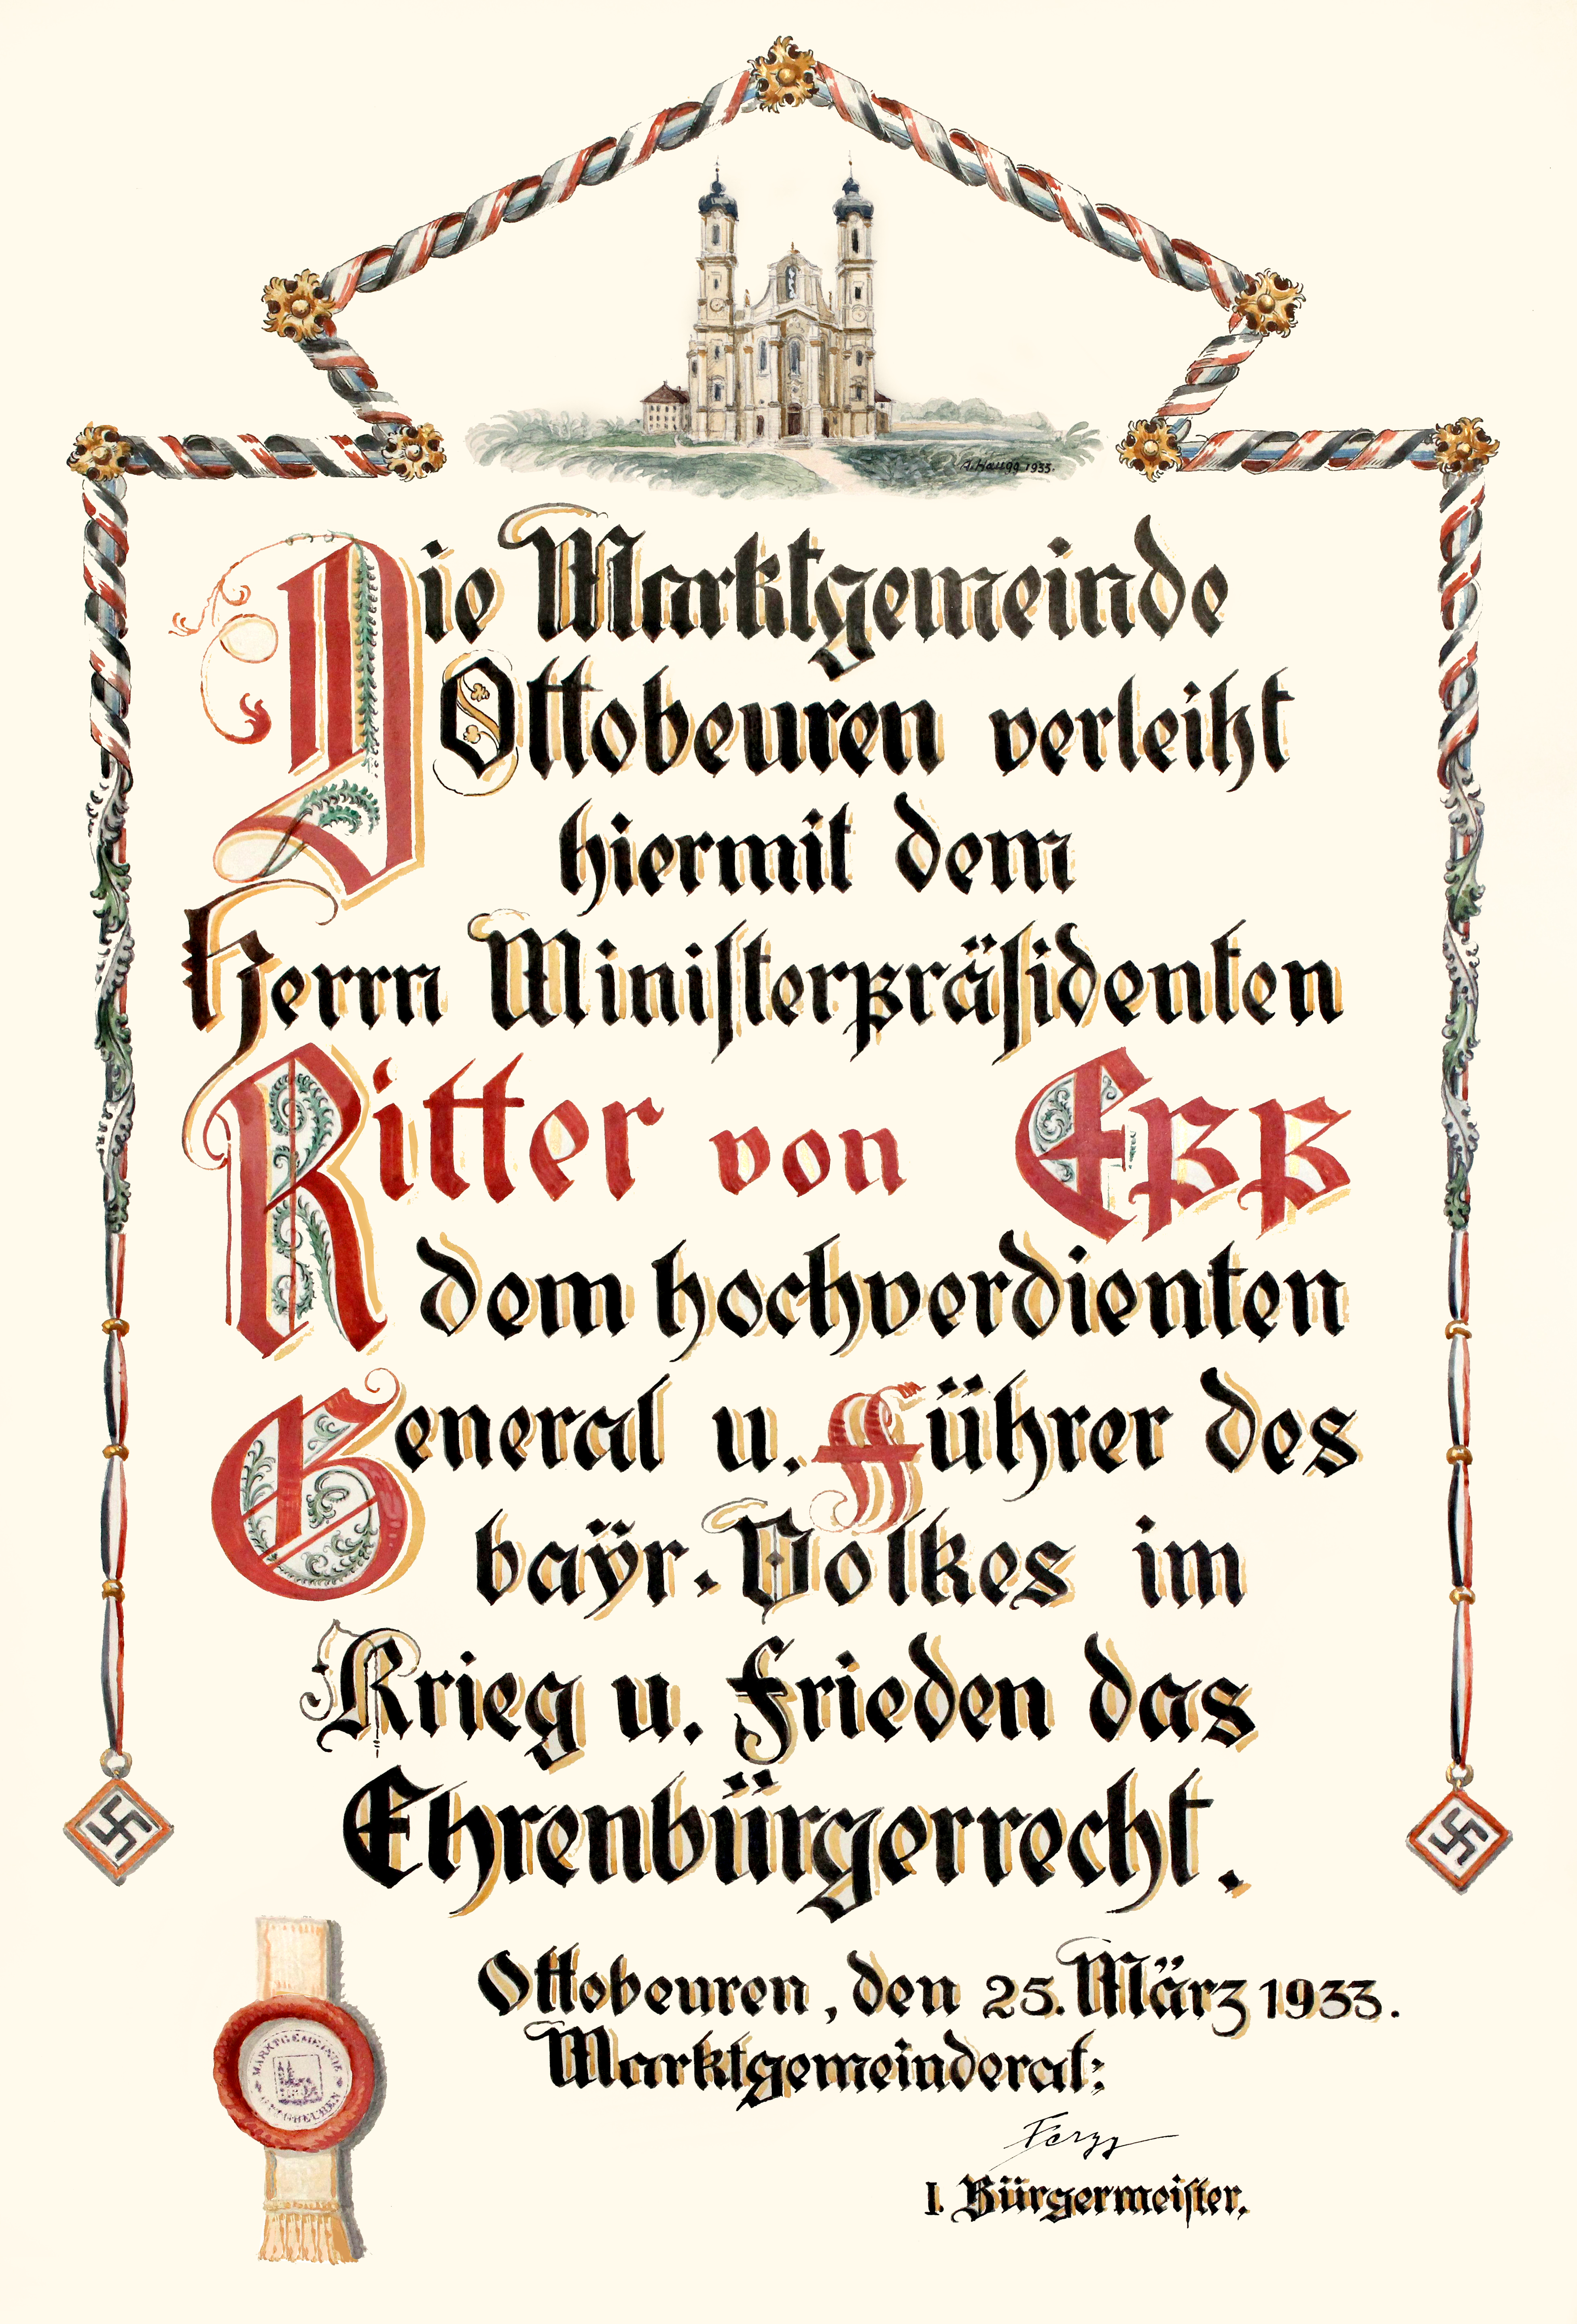 A. Haugg 1933.
Die Marktgemeinde
Ottobeuren verleiht
hiermit dem
Herrn Ministerpräsidenten
Ritter von Epp
dem hochverdienten
General u. Führer des
baÿr. Volkes im
Krieg u. Frieden das
Ehrenbürgerrecht.
Ottobeuren, den 25. März 1933.
Marktgemeinderat:
I. Bürgermeister.
MARKTGEMEINDE
OTTOBEUREN